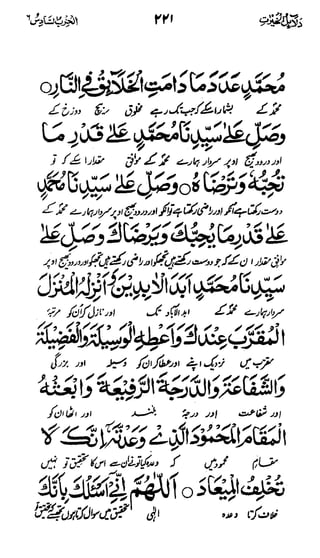 دلائل الخيرات ٢٢١ الحزب السادس ٦
مُحَمَّدٍ عَدَدَ مَا دَامَتِ الْخَلَآئِقُ فِي النَّارِ ○
محمد کے بشمار اسکے کہ جب تک رہے مخلوق بیچ دوزخ کے
وَصَلِّ عَلٰى سَيِّدِنَا مُحَمَّدٍ عَلٰى قَدْرِ مَا
اور درود بھیج اوپر سردار ہمارے محمد کے موافق مقدار اسکے کہ تو
تُحِبُّهٗ وَتَرْضَاهُ ○ وَصَلِّ عَلٰى سَيِّدِنَا مُحَمَّدٍ
دوست رکھتا ہے انکو اور راضی رکھتا ہے تو انکو اور درود بھیج اوپر سردار ہمارے محمد کے
عَلٰى قَدْرِ مَا يُحِبُّكَ وَيَرْضَاكَ وَصَلِّ عَلٰى
موافق مقدار ان کے کہ جو دوست رکھتے ہیں تجھکو اور راضی رکھتے ہیں تجھکو اور درود بھیج اوپر
سَيِّدِنَا مُحَمَّدٍ اَبَدَ الْاٰبِدِيْنَ ○ وَاَنْزِلْهُ الْمُنْزَلَ
سردار ہمارے محمد کے ابد الآباد تک اور نازل کر ان کو مرتبۂ
الْمُقَرَّبَ عِنْدَكَ وَاَعْطِهِ الْوَسِيْلَةَ وَالْفَضِيْلَةَ
مقرب میں نزدیک اپنے اور عطا کر ان کو وسیلہ اور بزرگی
وَالشَّفَاعَةَ وَالدَّرَجَةَ الرَّفِيْعَةَ وَابْعَثْهُ
اور شفاعت اور درجۂ بلند اور اٹھا ان کو
الْمَقَامَ الْمَحْمُوْدَ الَّذِيْ وَعَدْتَهٗ اِنَّكَ لَا
مقام محمود میں کہ وعدہ کیا تو نے ان سے اس کا تحقیق تو نہیں
تُخْلِفُ الْمِيْعَادَ ○ اَللّٰهُمَّ اِنِّيْ اَسْئَلُكَ بِاَنَّكَ
خلاف کرتا وعدہ الٰہی تحقیق میں سوال کرتا ہوں تجھسے کہ تحقیق تو